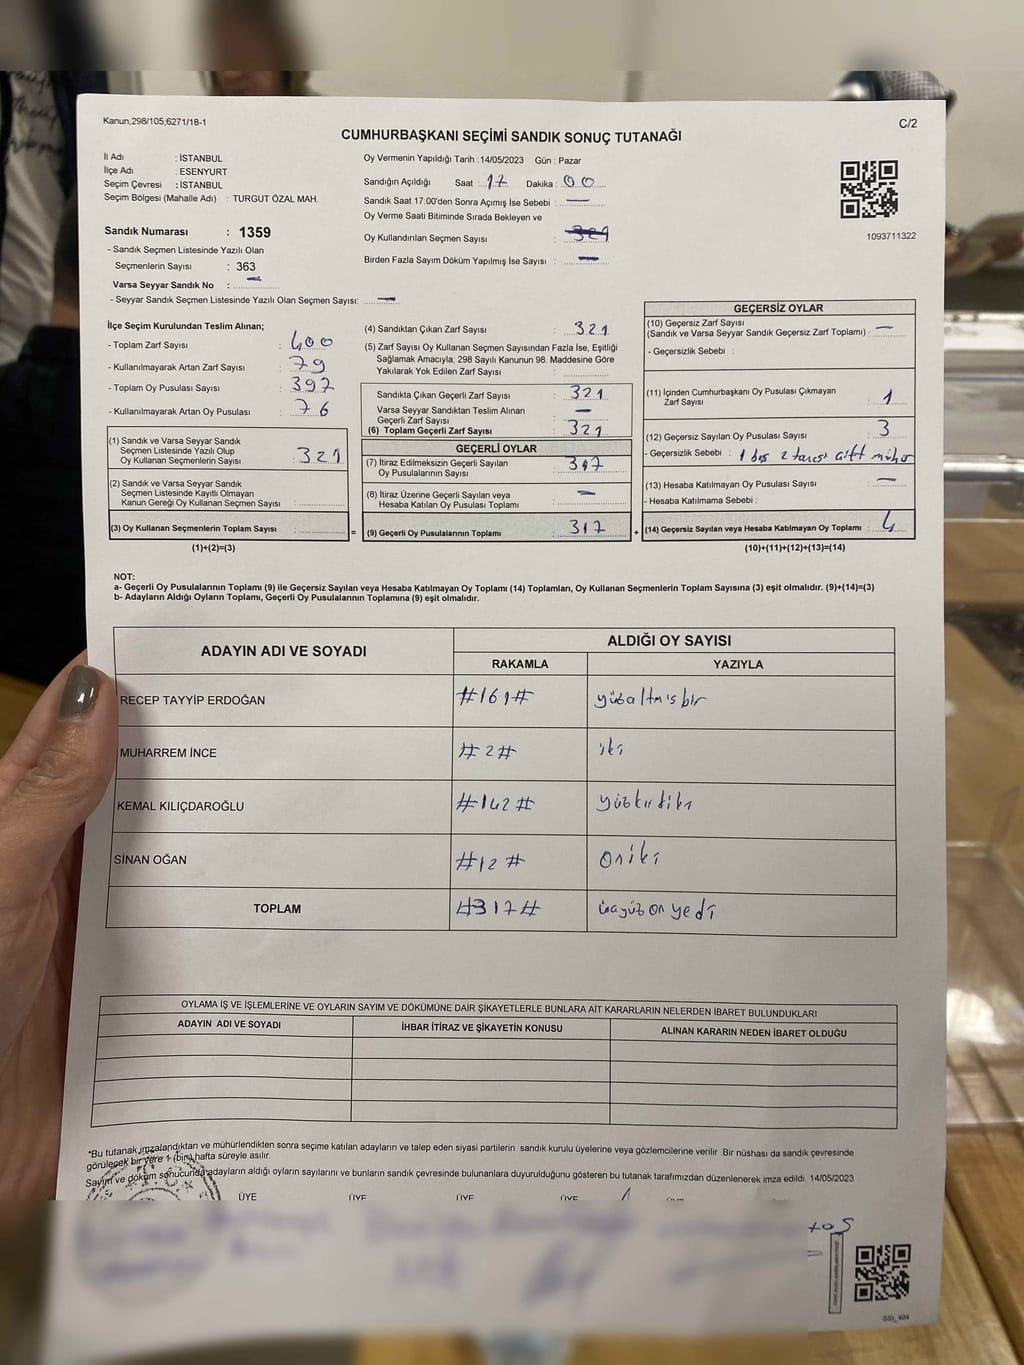 Kanun;298/105;6271/18-1
C/2
CUMHURBAŞKANI SEÇİMİ SANDIK SONUÇ TUTANAĞI
İl Adı : İSTANBUL
İlçe Adı : ESENYURT
Seçim Çevresi : İSTANBUL
Seçim Bölgesi (Mahalle Adı) : TURGUT ÖZAL MAH.
Sandık Numarası : 1359
- Sandık Seçmen Listesinde Yazılı Olan
Seçmenlerin Sayısı : 363
Varsa Seyyar Sandık No : —
- Seyyar Sandık Seçmen Listesinde Yazılı Olan Seçmen Sayısı: —
Oy Vermenin Yapıldığı Tarih : 14/05/2023 Gün : Pazar
Sandığın Açıldığı Saat : 17 Dakika : 00
Sandık Saat 17.00'den Sonra Açımış İse Sebebi : —
Oy Verme Saati Bitiminde Sırada Bekleyen ve
Oy Kullandırılan Seçmen Sayısı : 321
Birden Fazla Sayım Döküm Yapılmış İse Sayısı : —
1093711322
İlçe Seçim Kurulundan Teslim Alınan;
- Toplam Zarf Sayısı : 400
- Kullanılmayarak Artan Zarf Sayısı : 79
- Toplam Oy Pusulası Sayısı : 397
- Kullanılmayarak Artan Oy Pusulası : 76
(1) Sandık ve Varsa Seyyar Sandık
Seçmen Listesinde Yazılı Olup
Oy Kullanan Seçmenlerin Sayısı : 321
(2) Sandık ve Varsa Seyyar Sandık
Seçmen Listesinde Kayıtlı Olmayan
Kanun Gereği Oy Kullanan Seçmen Sayısı :
(3) Oy Kullanan Seçmenlerin Toplam Sayısı : =
(1)+(2)=(3)
(4) Sandıktan Çıkan Zarf Sayısı : 321
(5) Zarf Sayısı Oy Kullanan Seçmen Sayısından Fazla İse, Eşitliği
Sağlamak Amacıyla; 298 Sayılı Kanunun 98. Maddesine Göre
Yakılarak Yok Edilen Zarf Sayısı :
Sandıkta Çıkan Geçerli Zarf Sayısı : 321
Varsa Seyyar Sandıktan Teslim Alınan
Geçerli Zarf Sayısı : —
(6) Toplam Geçerli Zarf Sayısı : 321
GEÇERLİ OYLAR
(7) İtiraz Edilmeksizin Geçerli Sayılan
Oy Pusulalarının Sayısı : 317
(8) İtiraz Üzerine Geçerli Sayılan veya
Hesaba Katılan Oy Pusulası Toplamı : —
(9) Geçerli Oy Pusulalarının Toplamı : 317 +
GEÇERSİZ OYLAR
(10) Geçersiz Zarf Sayısı
(Sandık ve Varsa Seyyar Sandık Geçersiz Zarf Toplamı) : —
- Geçersizlik Sebebi :
(11) İçinden Cumhurbaşkanı Oy Pusulası Çıkmayan
Zarf Sayısı : 1
(12) Geçersiz Sayılan Oy Pusulası Sayısı : 3
- Geçersizlik Sebebi : 1 boş 2 tanesi çift mühür
(13) Hesaba Katılmayan Oy Pusulası Sayısı : —
- Hesaba Katılmama Sebebi :
(14) Geçersiz Sayılan veya Hesaba Katılmayan Oy Toplamı : 4
(10)+(11)+(12)+(13)=(14)
NOT:
a- Geçerli Oy Pusulalarının Toplamı (9) ile Geçersiz Sayılan veya Hesaba Katılmayan Oy Toplamı (14) Toplamları, Oy Kullanan Seçmenlerin Toplam Sayısına (3) eşit olmalıdır. (9)+(14)=(3)
b- Adayların Aldığı Oyların Toplamı, Geçerli Oy Pusulalarının Toplamına (9) eşit olmalıdır.
ADAYIN ADI VE SOYADI
ALDIĞI OY SAYISI
RAKAMLA YAZIYLA
RECEP TAYYİP ERDOĞAN #161# yüzaltmışbir
MUHARREM İNCE #2# iki
KEMAL KILIÇDAROĞLU #142# yüzkırkiki
SİNAN OĞAN #12# oniki
TOPLAM #317# üçyüz on yedi
OYLAMA İŞ VE İŞLEMLERİNE VE OYLARIN SAYIM VE DÖKÜMÜNE DAİR ŞİKAYETLERLE BUNLARA AİT KARARLARIN NELERDEN İBARET BULUNDUKLARI
ADAYIN ADI VE SOYADI İHBAR İTİRAZ VE ŞİKAYETİN KONUSU ALINAN KARARIN NEDEN İBARET OLDUĞU
*Bu tutanak imzalandıktan ve mühürlendikten sonra seçime katılan adayların ve talep eden siyasi partilerin sandık kurulu üyelerine veya gözlemcilerine verilir. Bir nüshası da sandık çevresinde
görülecek bir yere 1 (bir) hafta süreyle asılır.
Sayım ve döküm sonucunda adayların aldığı oyların sayılarını ve bunların sandık çevresinde bulunanlara duyurulduğunu gösteren bu tutanak tarafımızdan düzenlenerek imza edildi. 14/05/2023
ÜYE ÜYE ÜYE ÜYE